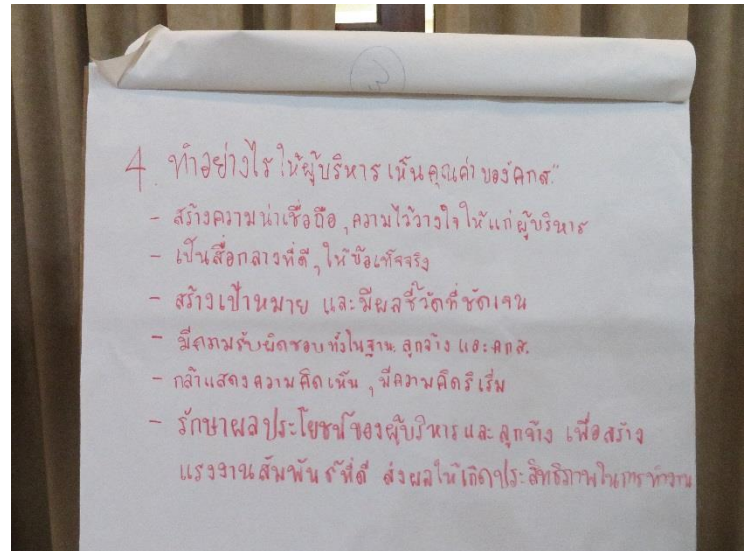 4. ทำอย่างไรให้ผู้บริหารเห็นคุณค่าของ "คกส."
- สร้างความน่าเชื่อถือ, ความไว้วางใจให้แก่ผู้บริหาร
- เป็นสื่อกลางที่ดี, ให้ข้อเท็จจริง
- สร้างเป้าหมาย และมีผลชี้วัดที่ชัดเจน
- มีความรับผิดชอบทั้งในฐานะลูกจ้างและคกส.
- กล้าแสดงความคิดเห็น, มีความคิดริเริ่ม
- รักษาผลประโยชน์ของผู้บริหารและลูกจ้าง เพื่อสร้าง
แรงงานสัมพันธ์ที่ดี ส่งผลให้เกิดประสิทธิภาพในการทำงาน